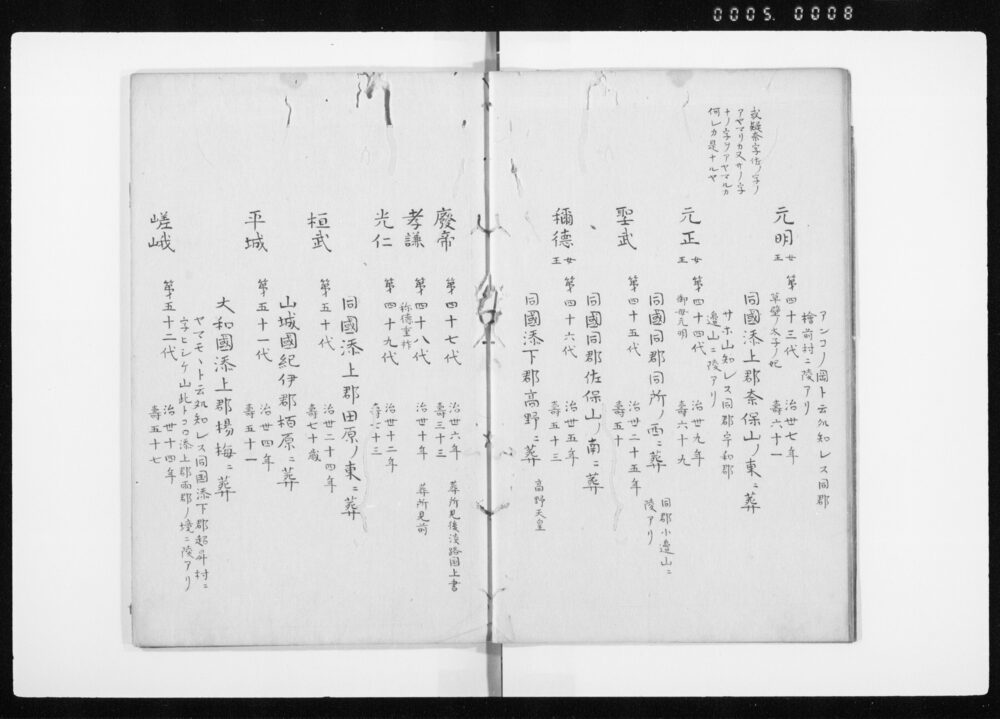 0005. 0008
アンコノ岡ト云処知レス同郡
檜前村ニ陵アリ
元明 女王 第四十三代 治世七年
草壁ノ太子ノ妃 壽六十一
同國添上郡奈保山ノ東ニ葬
或疑奈字佐ノ字ノ
アヤマリカ又サノ字
ナノ字ヲアヤマルカ
何レカ是ナルヤ
サホ山知レス同郡宇和郡
邊山ニ陵アリ
元正 女王 第四十四代 治世九年
御母元明 壽六十九
同國同郡同所ノ西ニ葬
同郡小邉山ニ
陵アリ
聖武 第四十五代 治世二十五年
壽五十
同國同郡佐保山ノ南ニ葬
稱德 女王 第四十六代 治世五年
壽五十三
同國添下郡髙野ニ葬 高野天皇
廢帝 第四十七代 治世六年
壽三十三 葬所見後淡路國上書
孝謙 第四十八代 治世十年 葬所見前
称徳重祚
光仁 第四十九代 治世十二年
壽七十三
同國添上郡田原ノ東ニ葬
桓武 第五十代 治世二十四年
壽七十歳
山城國紀伊郡栢原ニ葬
平城 第五十一代 治世四年
壽五十一
大和國添上郡楊梅ニ葬
ヤマモヽト云処知レス同國添下郡超昇村ニ
字ヒシケ山此トコロ添上郡両郡ノ境ニ陵アリ
嵯峨 第五十二代 治世十四年
壽五十七